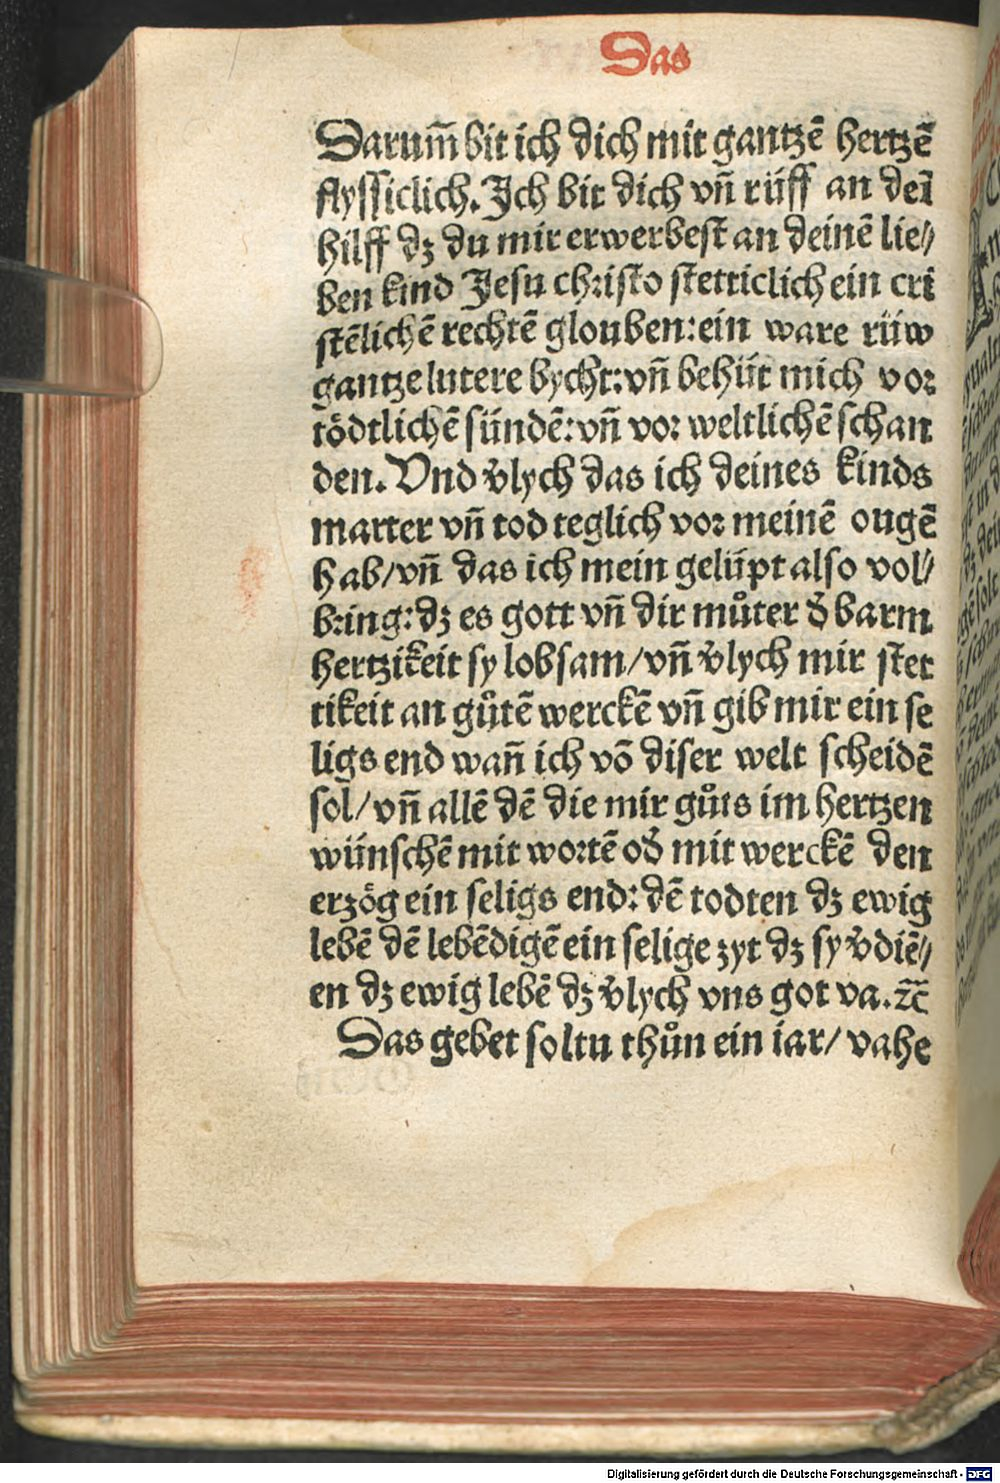 Das
Darum̄ bit ich dich mit gantzē hertzē
flyssiclich. Ich bit dich vn̄ rüff an deī
hilff dz du mir erwerbest an deinē lie⸗
ben kind Jesu christo stetticlich ein cri
stēlichē rechtē glouben: ein ware rüw
gantze lutere bycht: vn̄ behüt mich vor
tödtlichē sündē: vn̄ vor weltlichē schan
den. Vnd v̄lych das ich deines kinds
marter vn̄ tod teglich vor meinē ougē
hab/ vn̄ das ich mein gelüpt also vol⸗
bring: dz es gott vn̄ dir můter d̄ barm
hertzikeit sy lobsam/ vn̄ v̄lych mir stet
tikeit an gůtē werckē vn̄ gib mir ein se
ligs end wan̄ ich vō diser welt scheidē
sol/ vn̄ allē dē die mir gůts im hertzen
wünschē mit wortē od̄ mit werckē den
erzög ein seligs end: dē todten dz ewig
lebē dē lebēdigē ein selige zyt dz sy v̄diē⸗
en dz ewig lebē dz v̄lych vns got va. ⁊c̄
Das gebet soltu thůn ein iar/ vahe
Digitalisierung gefördert durch die Deutsche Forschungsgemeinschaft - DFG